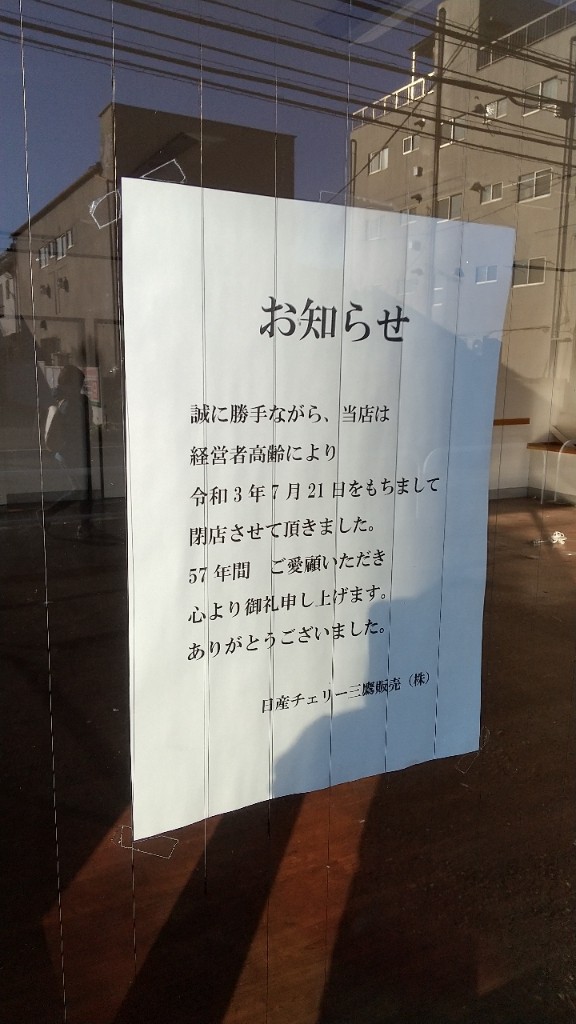 お知らせ
誠に勝手ながら、当店は
経営者高齢により
令和3年7月21日をもちまして
閉店させて頂きました。
57年間　ご愛顧いただき
心より御礼申し上げます。
ありがとうございました。
日産チェリー三鷹販売（株）